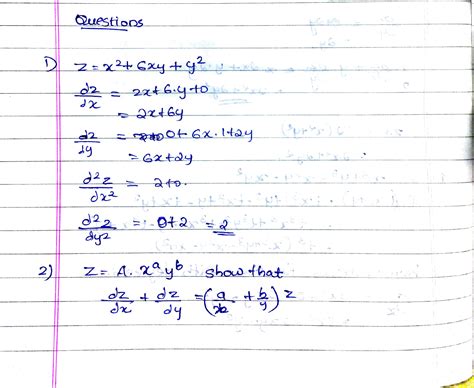 Questions
1) z = x² + 6xy + y²
dz/dx = 2x + 6·y + 0
= 2x + 6y
dz/dy = 0 + 6x·1 + 2y
= 6x + 2y
d²z/dx² = 2 + 0.
d²z/dy² = 0 + 2 = 2
2) z = A. xᵃ yᵇ show that
dz/dx + dz/dy = (a/x + b/y) z